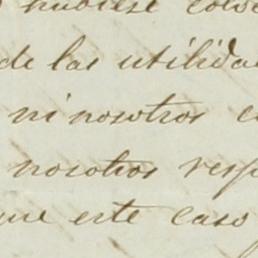 hubiese
de las utilida
ni nosotros
nosotros resp
que este caso